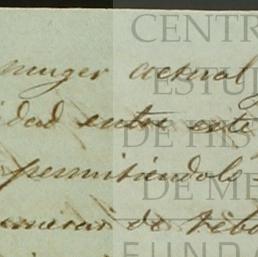 muger actual
idad entre este
permitiendolo
de
CENTR
ESTU
DE HIS
DE ME
FUND